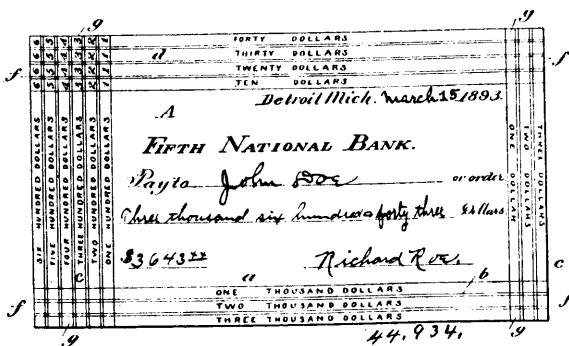 g g
FORTY DOLLARS
THIRTY DOLLARS
TWENTY DOLLARS
TEN DOLLARS
d
f f
6 5 4 3 2 1
6 5 4 3 2 1
6 5 4 3 2 1
SIX HUNDRED DOLLARS
FIVE HUNDRED DOLLARS
FOUR HUNDRED DOLLARS
THREE HUNDRED DOLLARS
TWO HUNDRED DOLLARS
ONE HUNDRED DOLLARS
Detroit Mich. March 15 1893.
A
FIFTH NATIONAL BANK.
Pay to John Doe or order
Three thousand six hundred forty three Dollars
$3643 Richard Roe.
ONE DOLLAR
TWO DOLLARS
THREE DOLLARS
c a b c
ONE THOUSAND DOLLARS
TWO THOUSAND DOLLARS
THREE THOUSAND DOLLARS
f f
g 44,934, g